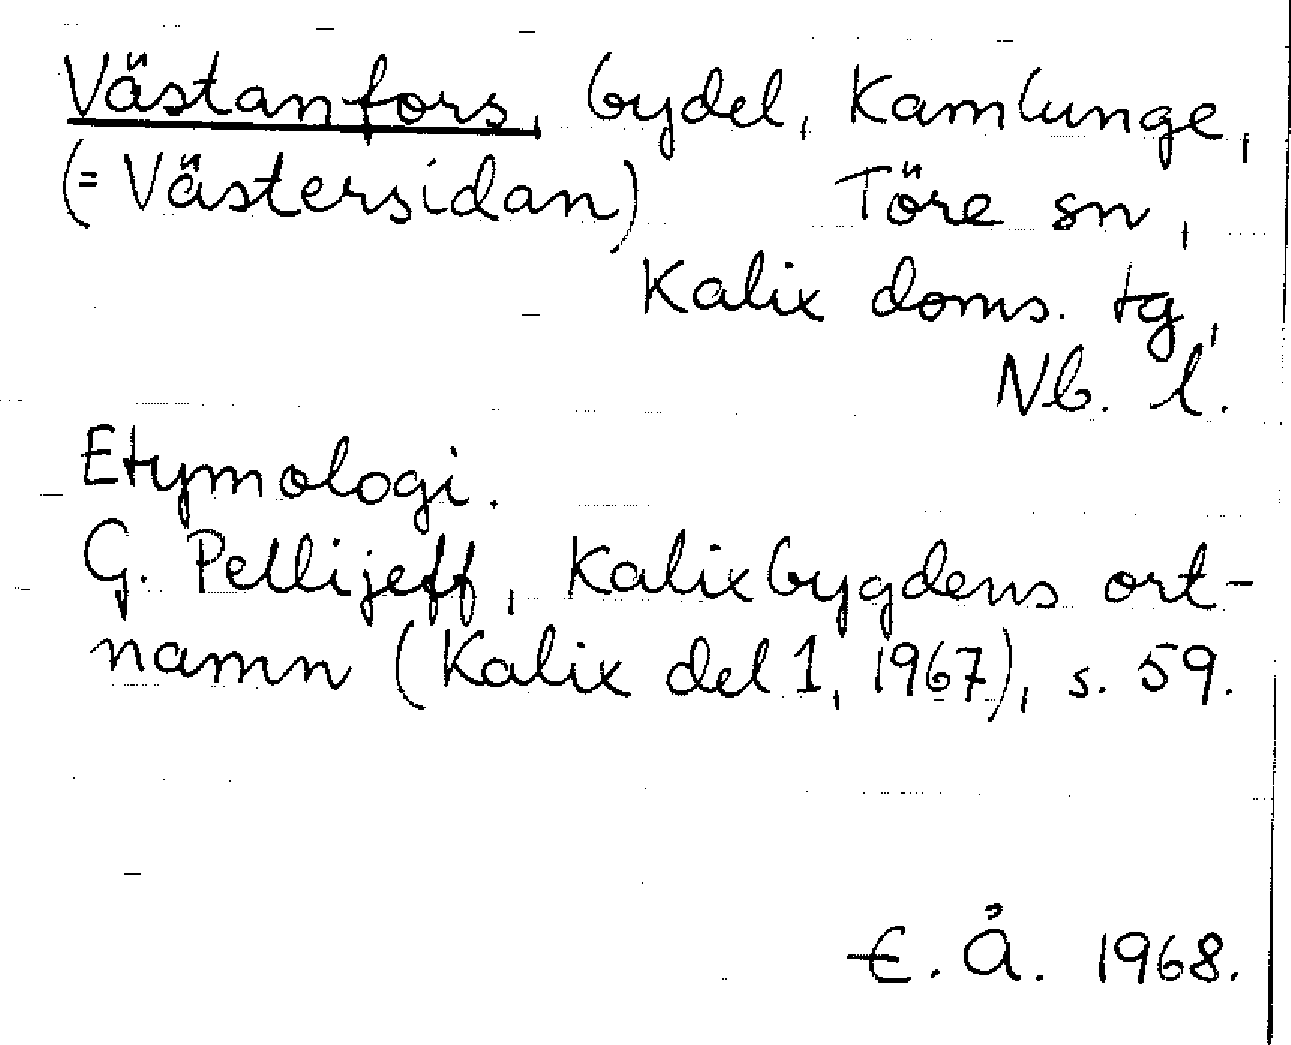 Västanfors, bydel, Kamlunge,
(= Västersidan) Töre sn,
Kalix doms. tg,
Nb. l.
Etymologi.
G. Pellijeff, Kalixbygdens ort-
namn (Kalix del 1, 1967), s. 59.
E. Å. 1968.